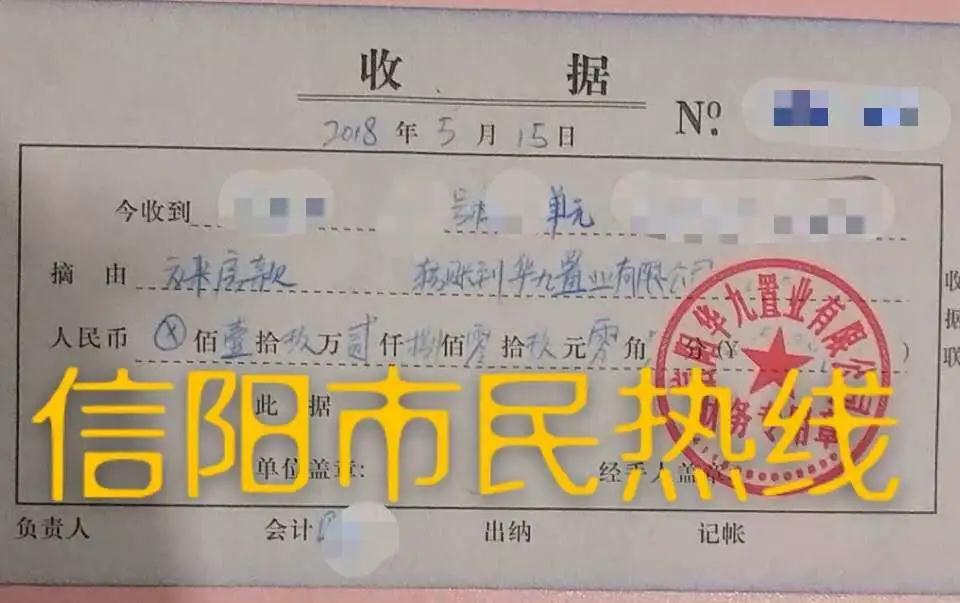 收 据
№
2018 年 5 月 15 日
今收到 号楼 单元
摘 由 房款 转账利华九置业有限公司
人民币 ⊗ 佰 壹 拾 玖 万 贰 仟 捌 佰 零 拾 玖 元 零 角 分 (¥ )
此 据
单位盖章: 经手人盖章:
负责人 会计 出纳 记帐
收据联
华九置业有限公司
财务专用章
信阳市民热线